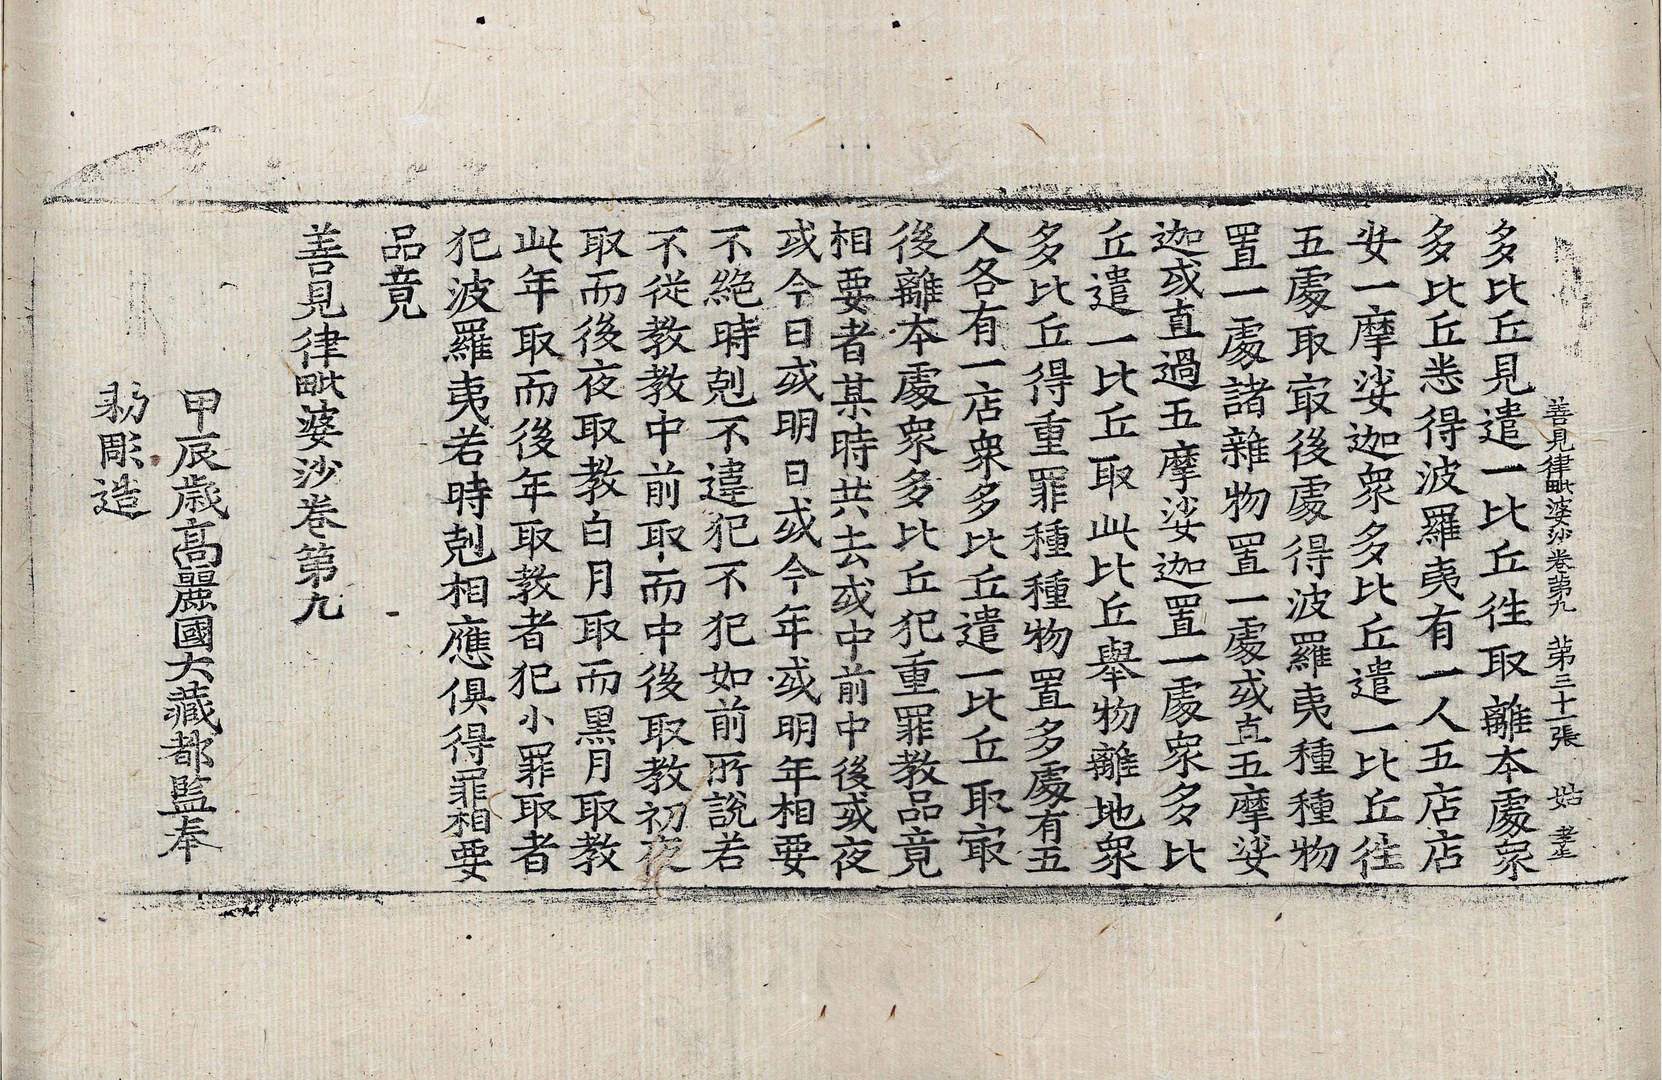 善見律毗婆沙卷第九　第三十一張　姑
多比丘見遣一比丘往取離本處衆
多比丘悉得波羅夷有一人五店店
安一摩娑迦衆多比丘遣一比丘往
五處取㝡後處得波羅夷種種物
置一處諸雜物置一處或直五摩娑
迦或直過五摩娑迦置一處衆多比
丘遣一比丘取此比丘舉物離地衆
多比丘得重罪種種物置多處有五
人各有一店衆多比丘遣一比丘取㝡
後離本處衆多比丘犯重罪教品竟
相要者某時共去或中前中後或夜
或今日或明日或今年或明年相要
不絕時剋不違犯不犯如前所說若
不從教教中前取而中後取教初夜
取而後夜取教白月取而黑月取教
此年取而後年取教者犯小罪取者
犯波羅夷若時剋相應俱得罪相要
品竟
善見律毗婆沙卷第九
甲辰歲高麗國大藏都監奉
勅彫造